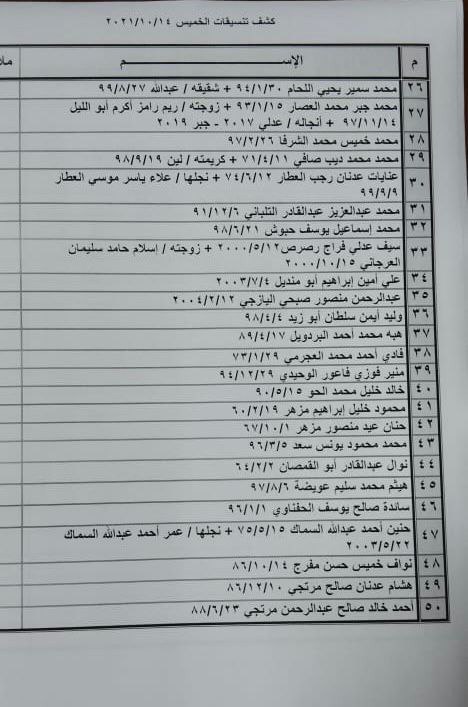 كشف تنسيقات الخميس ٢٠٢١/١٠/١٤
م الإســـــــــم ملا
٢٦ محمد سمير يحيي اللحام ٩٤/١/٣٠ + شقيقه / عبدالله ٩٩/٨/٢٧
٢٧ محمد جبر محمد العصار ٩٣/١/١٥ + زوجته / ريم رامز أكرم أبو الليل
٩٧/١١/١٤ + أنجاله / عدلي ٢٠١٧ - جبر ٢٠١٩
٢٨ محمد خميس محمد الشرفا ٩٧/٢/٢٦
٢٩ محمد محمد ديب صافي ٧١/٤/١١ + كريمته / لين ٩٨/٩/١٩
٣٠ عنايات عدنان رجب العطار ٧٤/٦/١٢ + نجلها / علاء ياسر موسي العطار
٩٩/٩/٩
٣١ محمد عبدالعزيز عبدالقادر التلباني ٩١/١٢/٦
٣٢ محمد إسماعيل يوسف حبوش ٩٨/٦/٢١
٣٣ سيف عدلي فراج رصرص ٢٠٠٠/٥/١٢ + زوجته / إسلام حامد سليمان
العرجاني ٢٠٠٠/١٠/١٥
٣٤ علي أمين إبراهيم أبو منديل ٢٠٠٣/٧/٤
٣٥ عبدالرحمن منصور صبحي اليازجي ٢٠٠٤/٢/١٢
٣٦ وليد أيمن سلطان أبو زيد ٩٨/٤/٤
٣٧ هبه محمد أحمد البردويل ٨٩/٤/١٧
٣٨ فادي أحمد محمد العجرمي ٧٣/١/٢٩
٣٩ منير فوزي فاعور الوحيدي ٩٤/١٢/٢٩
٤٠ خالد خليل محمد الحو ٩٠/٥/١٥
٤١ محمود خليل إبراهيم مزهر ٦٠/٢/١٩
٤٢ حنان عيد منصور مزهر ٦٧/١٠/١
٤٣ محمد محمود يونس سعد ٩٦/٣/٥
٤٤ نوال عبدالقادر أبو القمصان ٦٤/٢/٢
٤٥ هيثم محمد سليم عويضة ٩٧/٨/٦
٤٦ ساندة صالح يوسف الحفناوي ٩٦/١/١
٤٧ حنين أحمد عبدالله السماك ٧٥/٥/١٥ + نجلها / عمر أحمد عبدالله السماك
٢٠٠٣/٥/٢٢
٤٨ نواف خميس حسن مفرج ٨٦/١٠/١٤
٤٩ هشام عدنان صالح مرتجي ٨٦/١٢/١٠
٥٠ أحمد خالد صالح عبدالرحمن مرتجي ٨٨/٦/٢٣